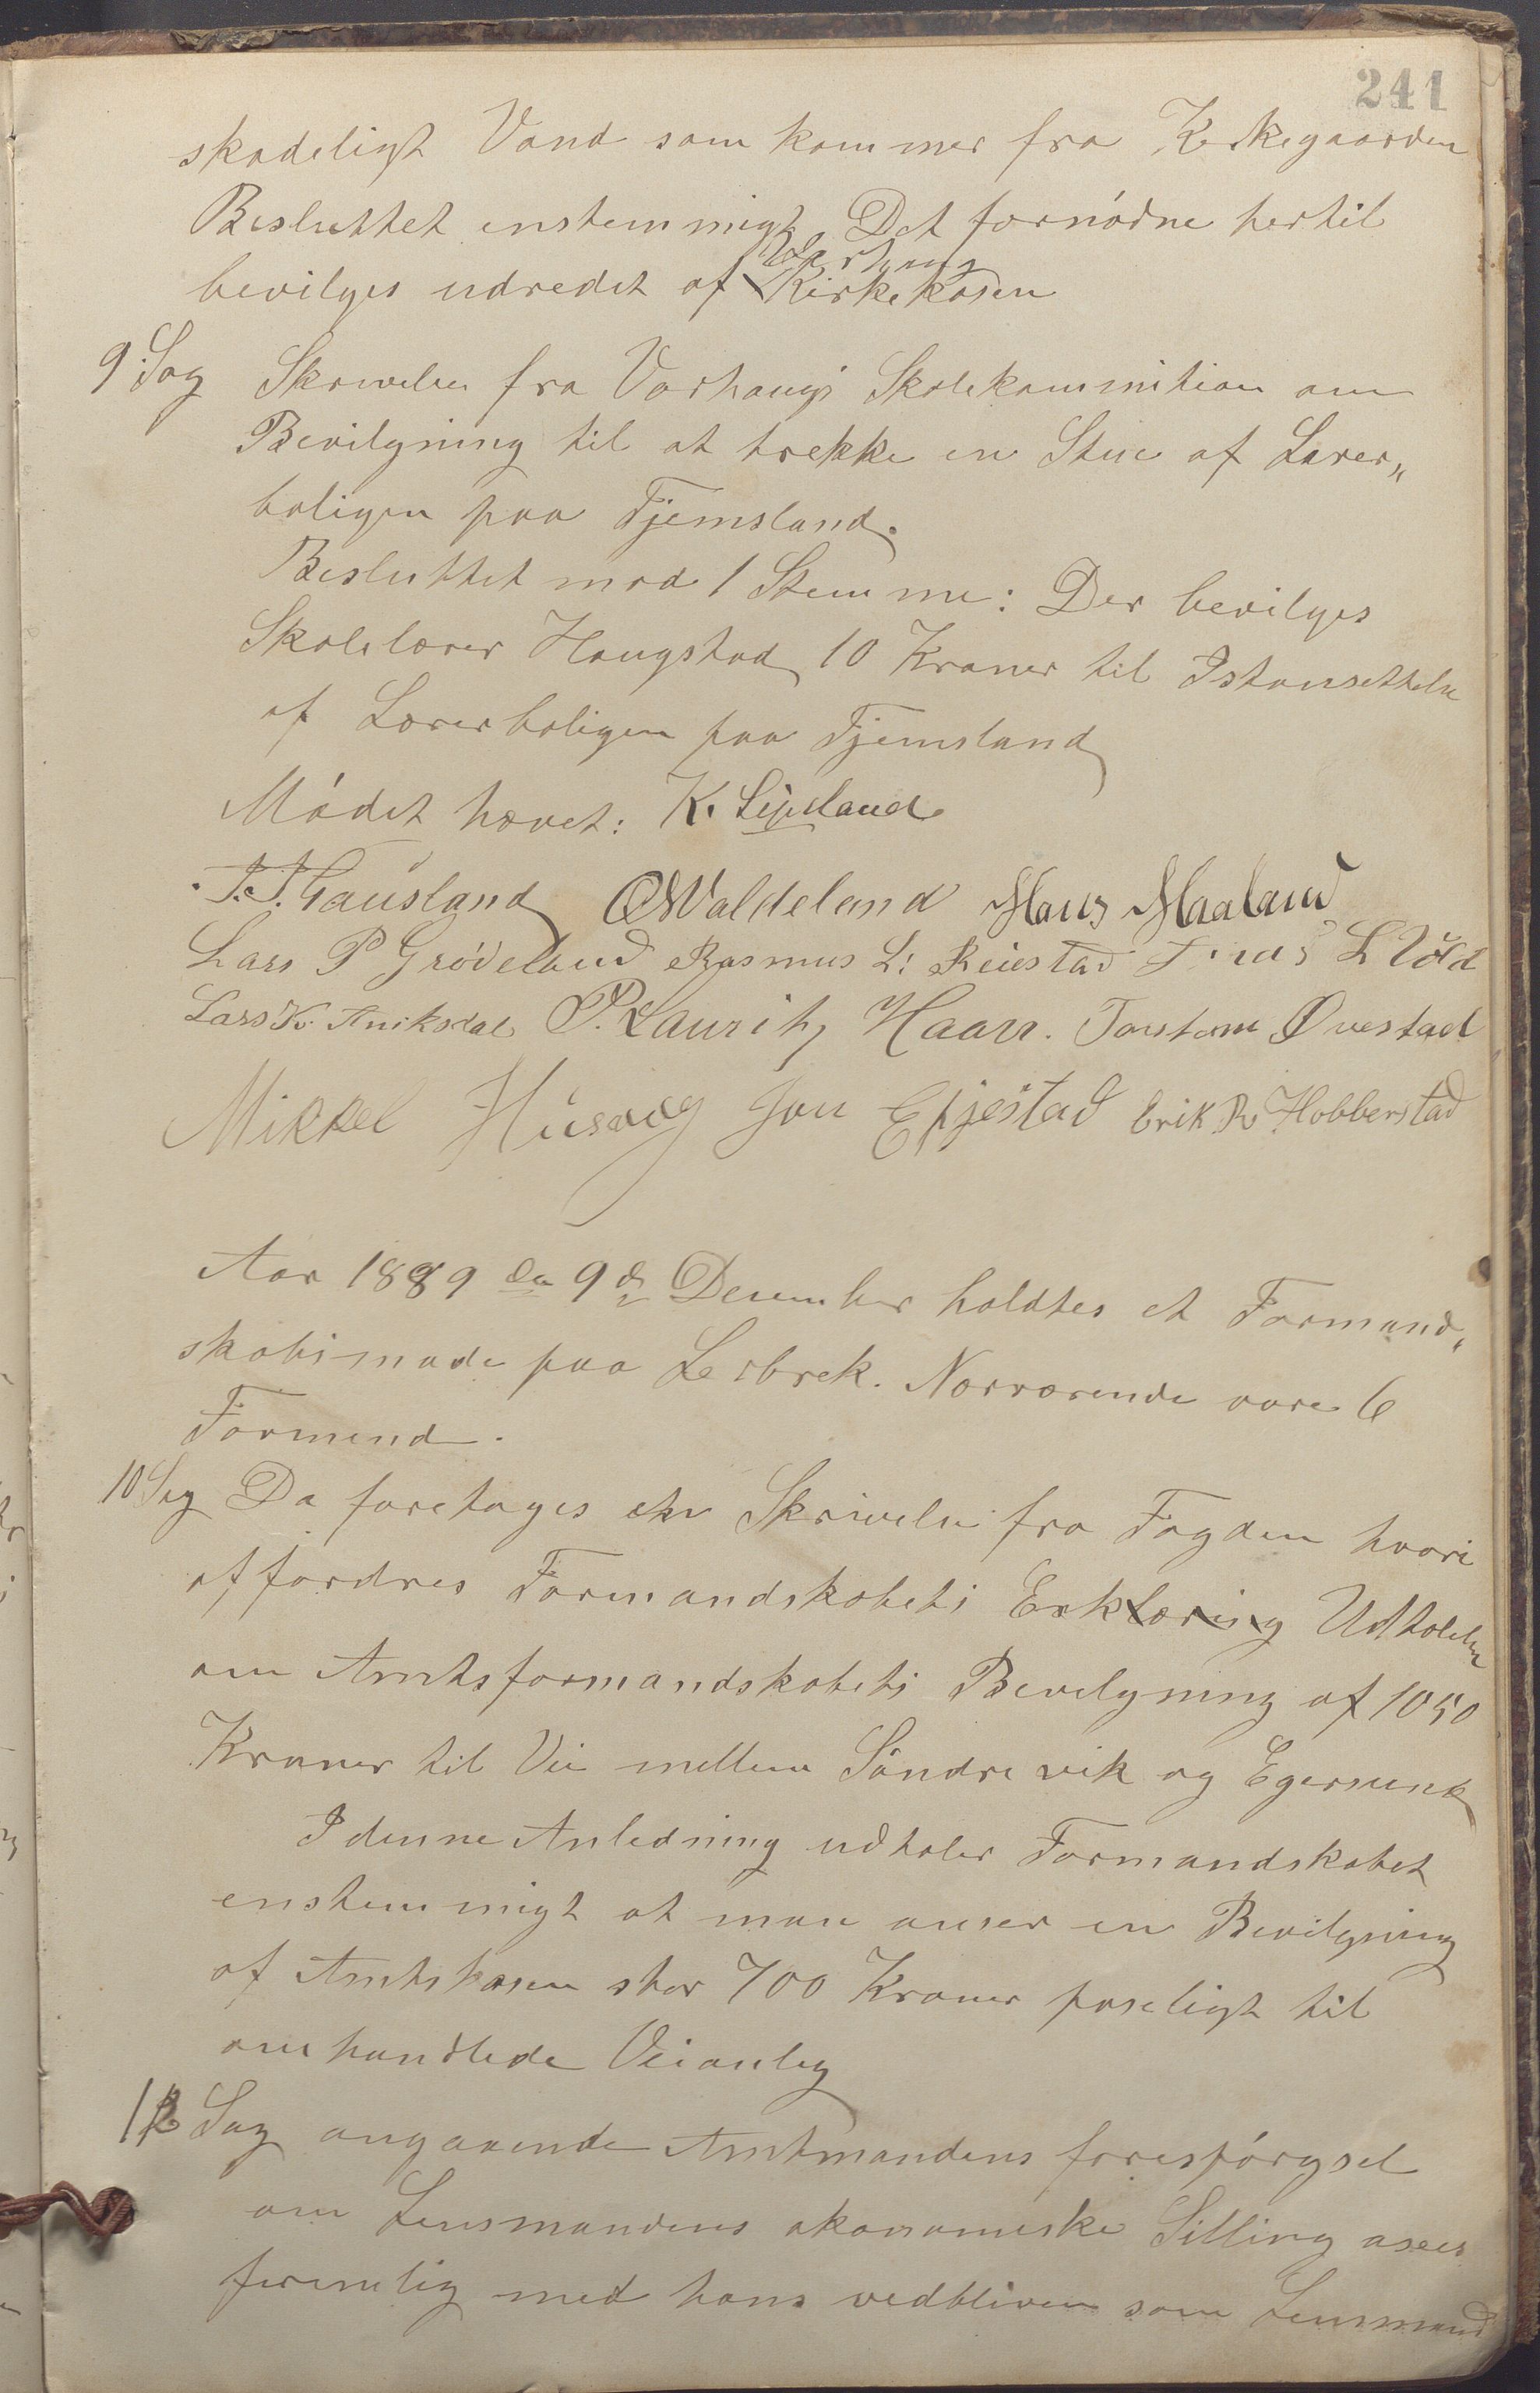 241
skadeligt Vand som kommer fra Kirkegaarden
Besluttet enstemmigt, Det fornódne hertil
bevilges udredet af Varhaugs Kirkekasen
9 Sag Skrivelse fra Varhaugs Skolekommision om
Bevilgning til at trekke en Stue af Lærer„
boligen paa Fjemsland.
Besluttet mod 1 Stemme: Der bevilges
Skolelærer Haugstad 10 Kroner til Istansettelse
af Lærerboligen paa Fjemsland
Módet hævet: K. Lipsland
T. T. Gausland O Waldeland Hans Maaland
Lars P Grødeland Rasmus L: Reiestad L Vold
Lars K. Aniksdal P. Lauritz Haarr. Torstein Øvestad
Mikkel Husvæg Jon Epjestad Erik R Hobberstad
Aar 1889 den 9de December holdtes et Formand„
skabsmøde paa Lerbrek. Nærværende vare 6
Formend.
10 Sag Da foretoges en Skrivelse fra Fogden hvori
affordres Formandskabets Erklæring Udtalelse
om Amtsformandskabets Bevilgning af 1050
Kroner til Vei mellem Söndre vik og Egersund
I denne Anledning udtaler Formandskabet
enstemmigt at man anser en Bevilgning
af Amtskasen stor 700 Kroner paseligt til
omhandlede Veianleg
12 Sag angaaende Amtmandens foresporgsel
om Lensmandens økonomiske Stilling asees
forenelig med hans vedbliven som Lensmand